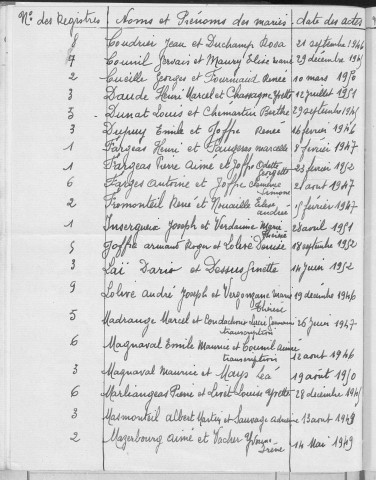 Nos des Registres Noms et Prénoms des mariés date des actes
8 Coudrier Jean et Duchamp Rosa 21 septembre 1946
7 Counil Gervais et Maury Elise 29 décembre
2 Cueille Georges et Fournaud Renée 10 mars 1950
3 Daude Henri Marcel et Chassagne Yvette 12 juillet 1951
3 Dunat Louis et Chémartin Berthe 29 septembre
3 Dupuy Emile et Goffre Renée 16 février 1946
1 Fargeas Henri et Faugeras marcelle 8 février 1947
1 Fargeas Pierre Aimé et Joffre Odette 23 février 1952
Georgette
6 Farges Antoine et Joffre 2 août 1947
Simone
2 Fromonteil René et Nouaille Elise 15 février 1947
andrée
1 Insergueix Joseph et Verdaume Marie 28 avril 1951
Thérèse
5 Goffre armand Roger et Lolivé Denise 18 septembre 1952
3 Laï Dario et Dessus Ginette 14 juin 1952
9 Lolivé André Joseph et Vergonzane marie 19 décembre 1946
Thérèse
5 Madrange Marcel et Germaine 26 juin 1947
transcription
6 Magnaval Emile Maurice et Counil Aimée
transcription 12 août 1946
3 Magnaval Maurice et Mays Léa 19 août 1950
6 Marliangeas Pierre et Livet Louise Yvette 28 décembre
3 Masmonteil Albert Martin et Sauvage 13 août 1949
2 Mazerbourg Aimé et Vacher Yvonne 14 Mai 1949
Irène